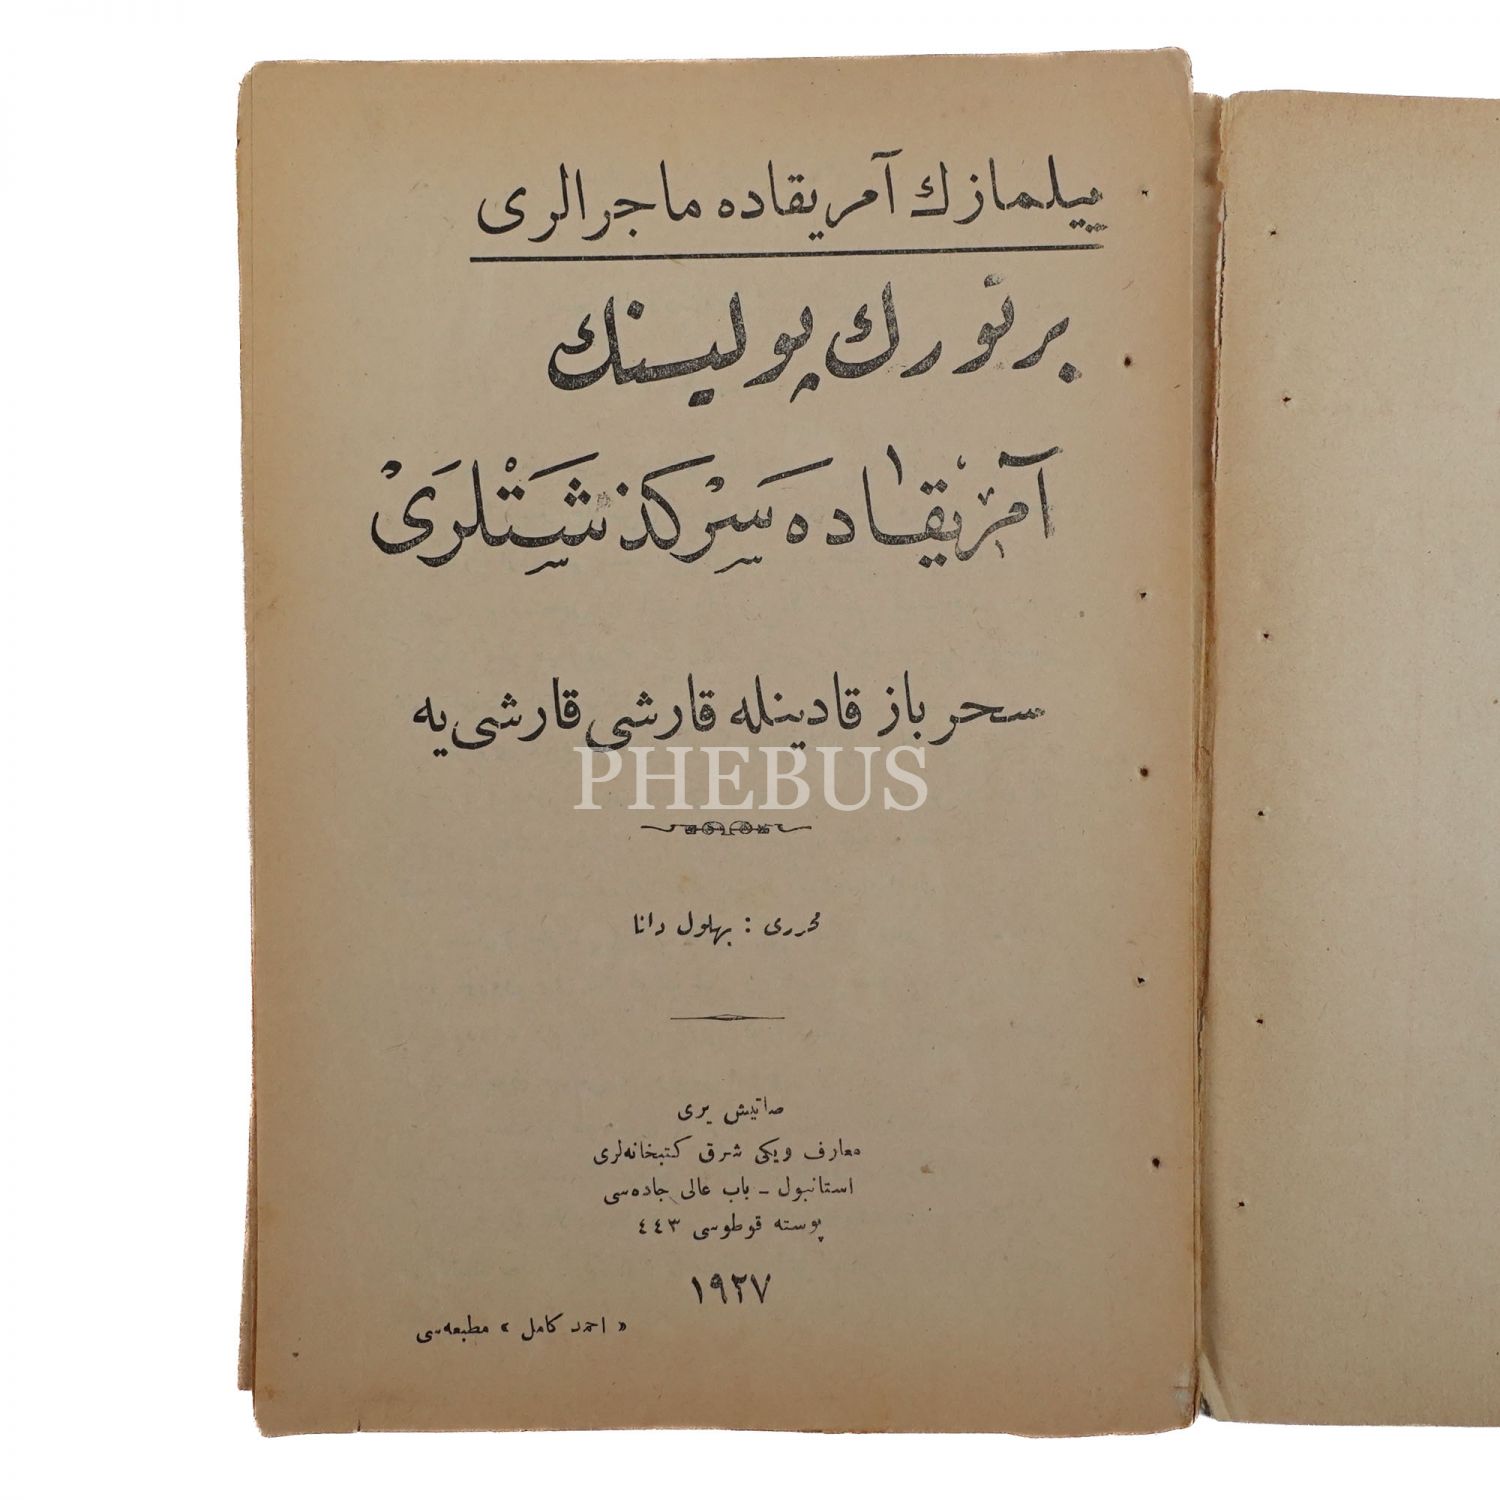 ييلمازك آمريقاده ماجرالرى
بر تورك پوليسنك
آمْريقاده سَرْكذشَتْلرَىْ
سحرباز قادينله قارشى قارشى يه
PHEBUS
محررى : بهلول دانا
صاتيش يرى
معارف ويكى شرق كتبخانه‌لرى
استانبول ـ باب عالى جاده‌سى
پوسته قوطوسى ٤٤٣
١٩٢٧
« احمد كامل » مطبعه‌سى